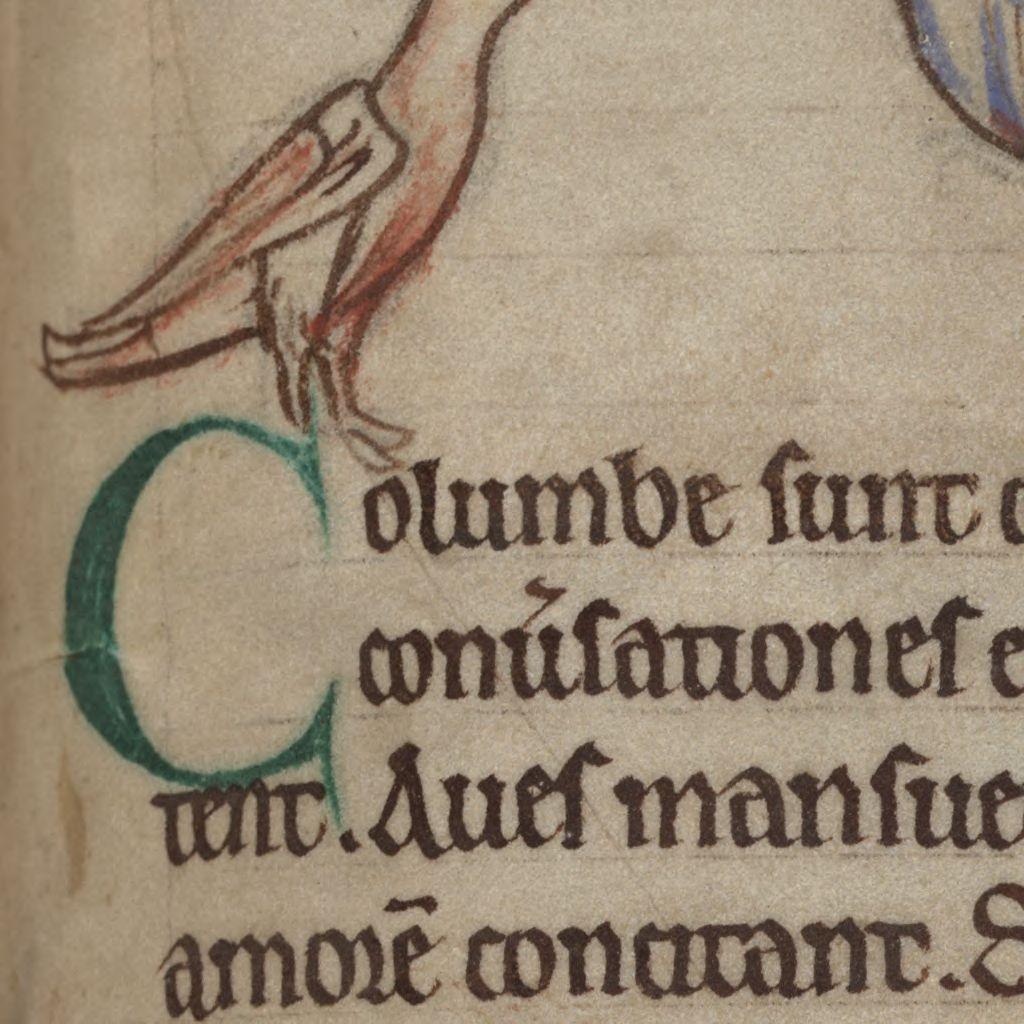 Columbe sunt
conu̓sationes
tent. Aues mansue
amorē concitant.